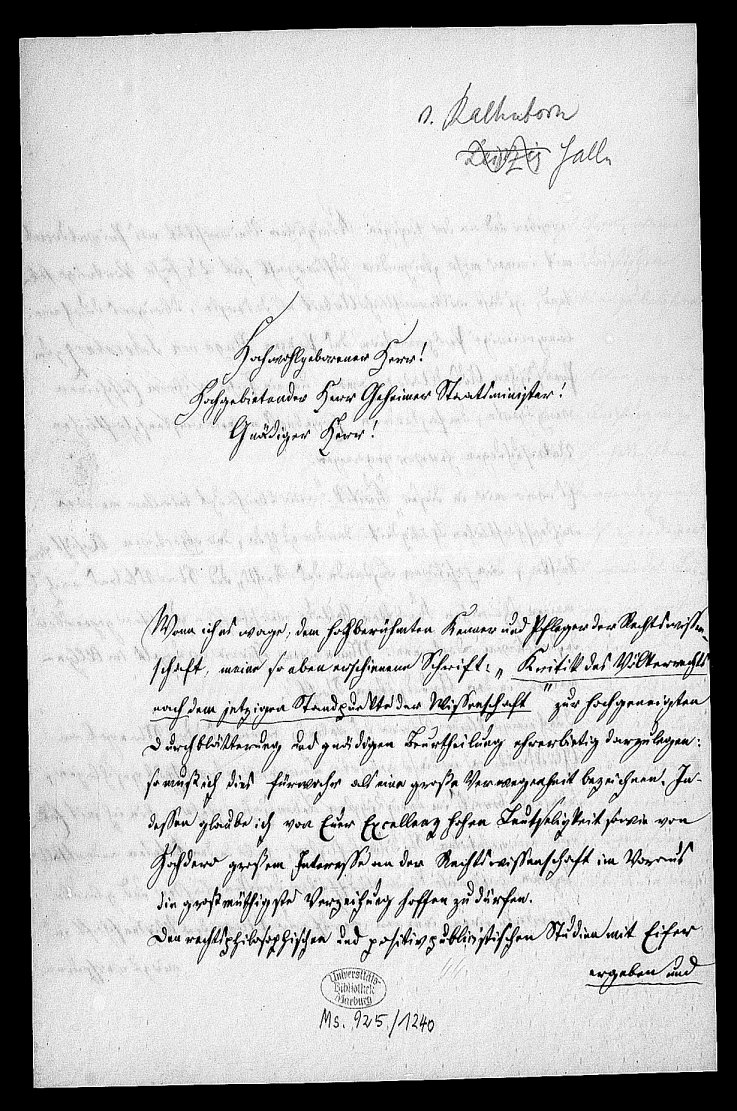 v. Kaltenborn
Leipzig Halle
Hochwohlgeborener Herr!
Hochgebietender Herr Geheimer Staatsminister!
Gnädiger Herr!
Wenn ich es wage, dem hochberühmten Kenner und Pfleger der Rechtswissen-
schaft, meine so eben erschienene Schrift: „Kritik des Völkerrechts
nach dem jetzigen Standpunkte der Wissenschaft" zur hochgeneigten
Durchblätterung und gnädigen Beurtheilung ehrerbietig darzulegen:
so muß ich dies fürwahr als eine große Verwegenheit bezeichnen. In-
dessen glaube ich von Euer Excellenz hohen Leutseligkeit sowie von
Hochdero großem Interesse an der Rechtswissenschaft im Voraus
die großmüthigste Verzeihung hoffen zu dürfen.
Den rechtsphilosophischen und positiv publicistischen Studien mit Eifer
ergeben und
Universitäts-
Bibliothek
Marburg
Ms. 925/1240